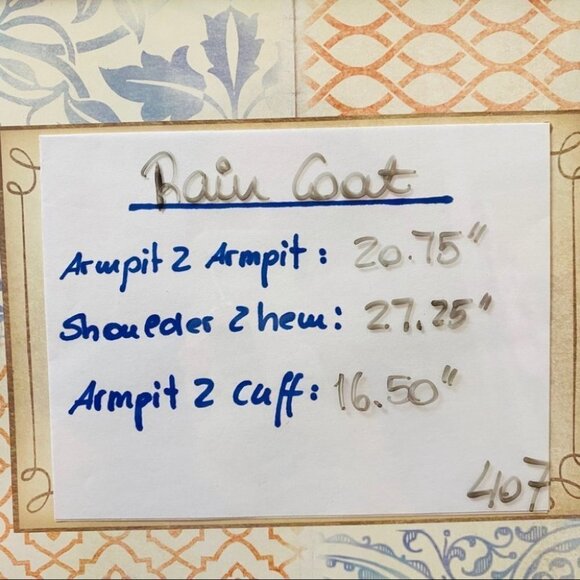 Rain Coat
Armpit 2 Armpit: 20.75"
Shoulder 2 hem: 27.25"
Armpit 2 Cuff: 16.50"
407